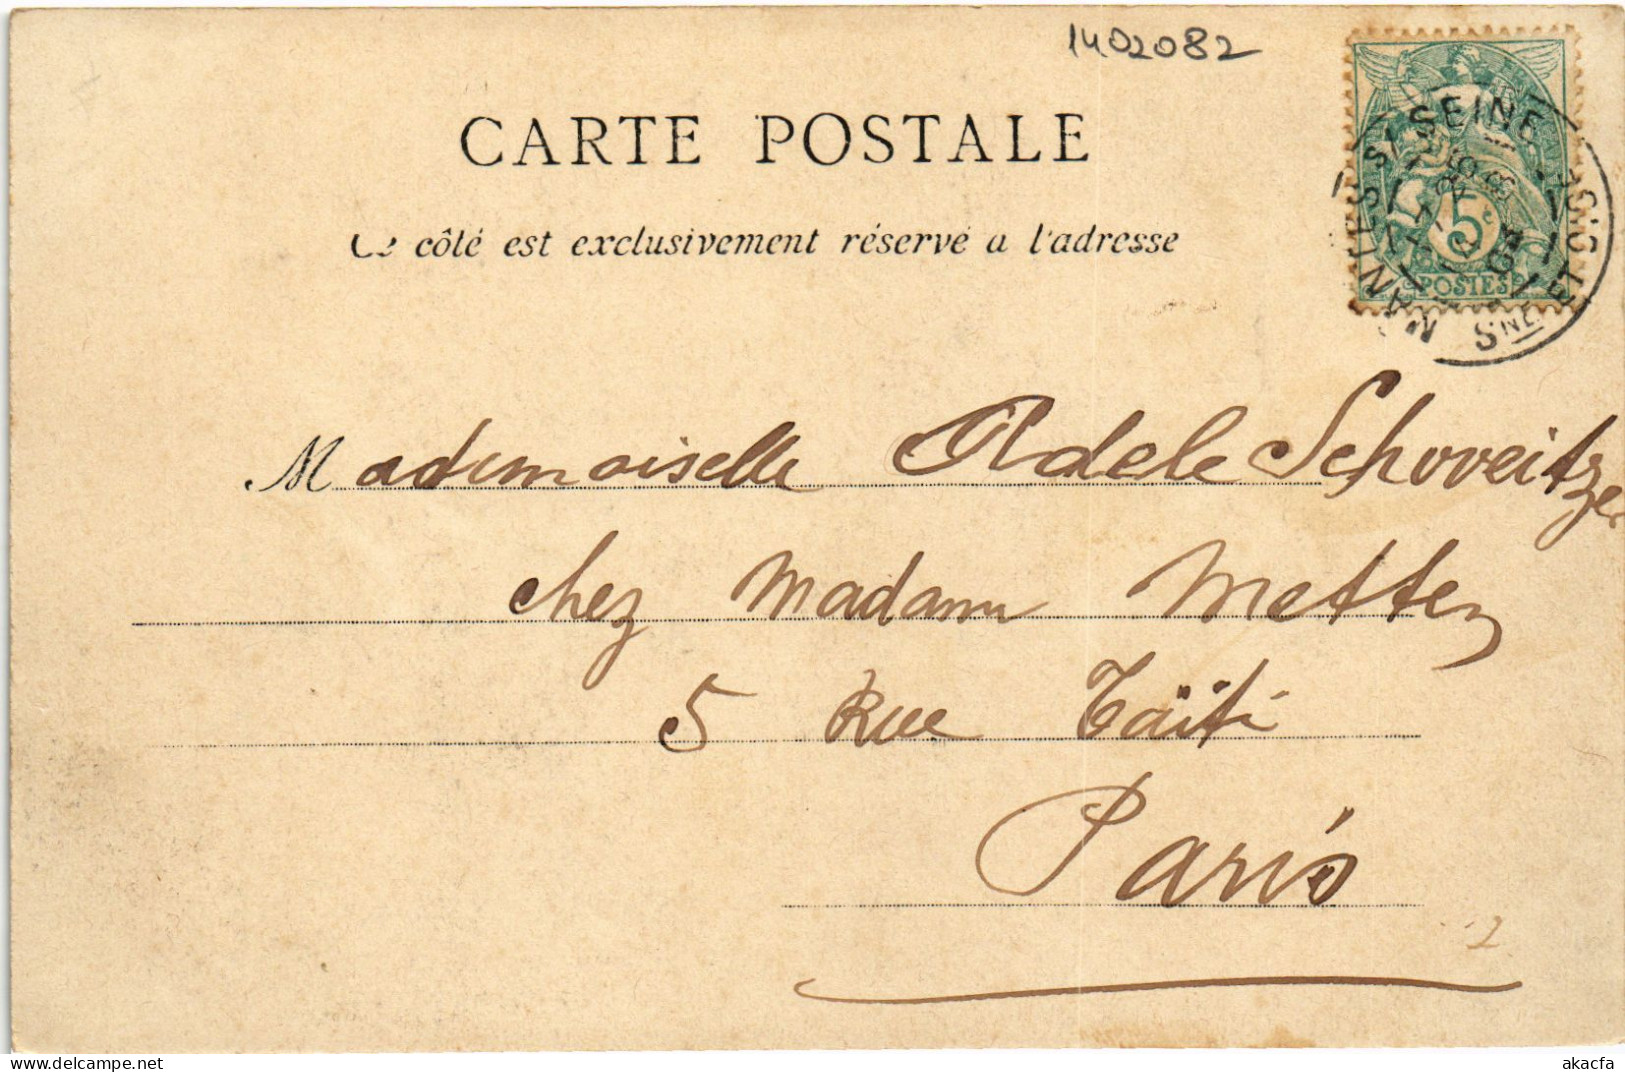 1402082
CARTE POSTALE
Ce côté est exclusivement réservé a l'adresse
5c
POSTES
MANTES S/ SEINE
SNE ET OISE
04
Mademoiselle Adele Schoveitzer
chez Madame Metten
5 Rue Taïti
Paris
2
delcampe.net
akacfa